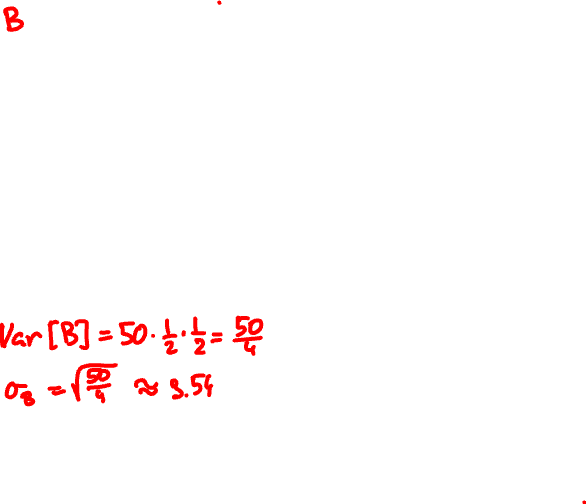 B
Var[B] = 50 · 1/2 · 1/2 = 50/4
σ_B = √(50/4) ≈ 3.54